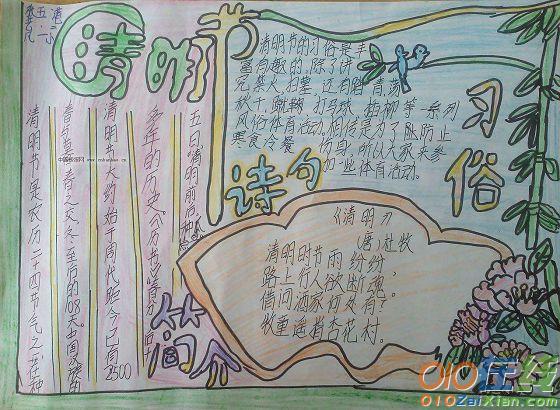 清明节
清明节的习俗是丰
富有趣的,除了讲
究禁火、扫墓,还有踏青、荡
秋千、蹴鞠、打马球、插柳等一系列
风俗体育活动。相传是为了防止
寒食冷餐伤身,所以大家来参
加一些体育活动。
习俗
诗句
《清明》
唐 杜牧
清明时节雨纷纷,
路上行人欲断魂。
借问酒家何处有?
牧童遥指杏花村。
清明节是农历二十四节气之一,在
春与暮春之交,冬至后的108天。中国汉族
清明节大约始于周代距今已有2500
多年的历史。《历书》:春分后十
五日 清明前后种
简介
010在线
010ZaiXian.com